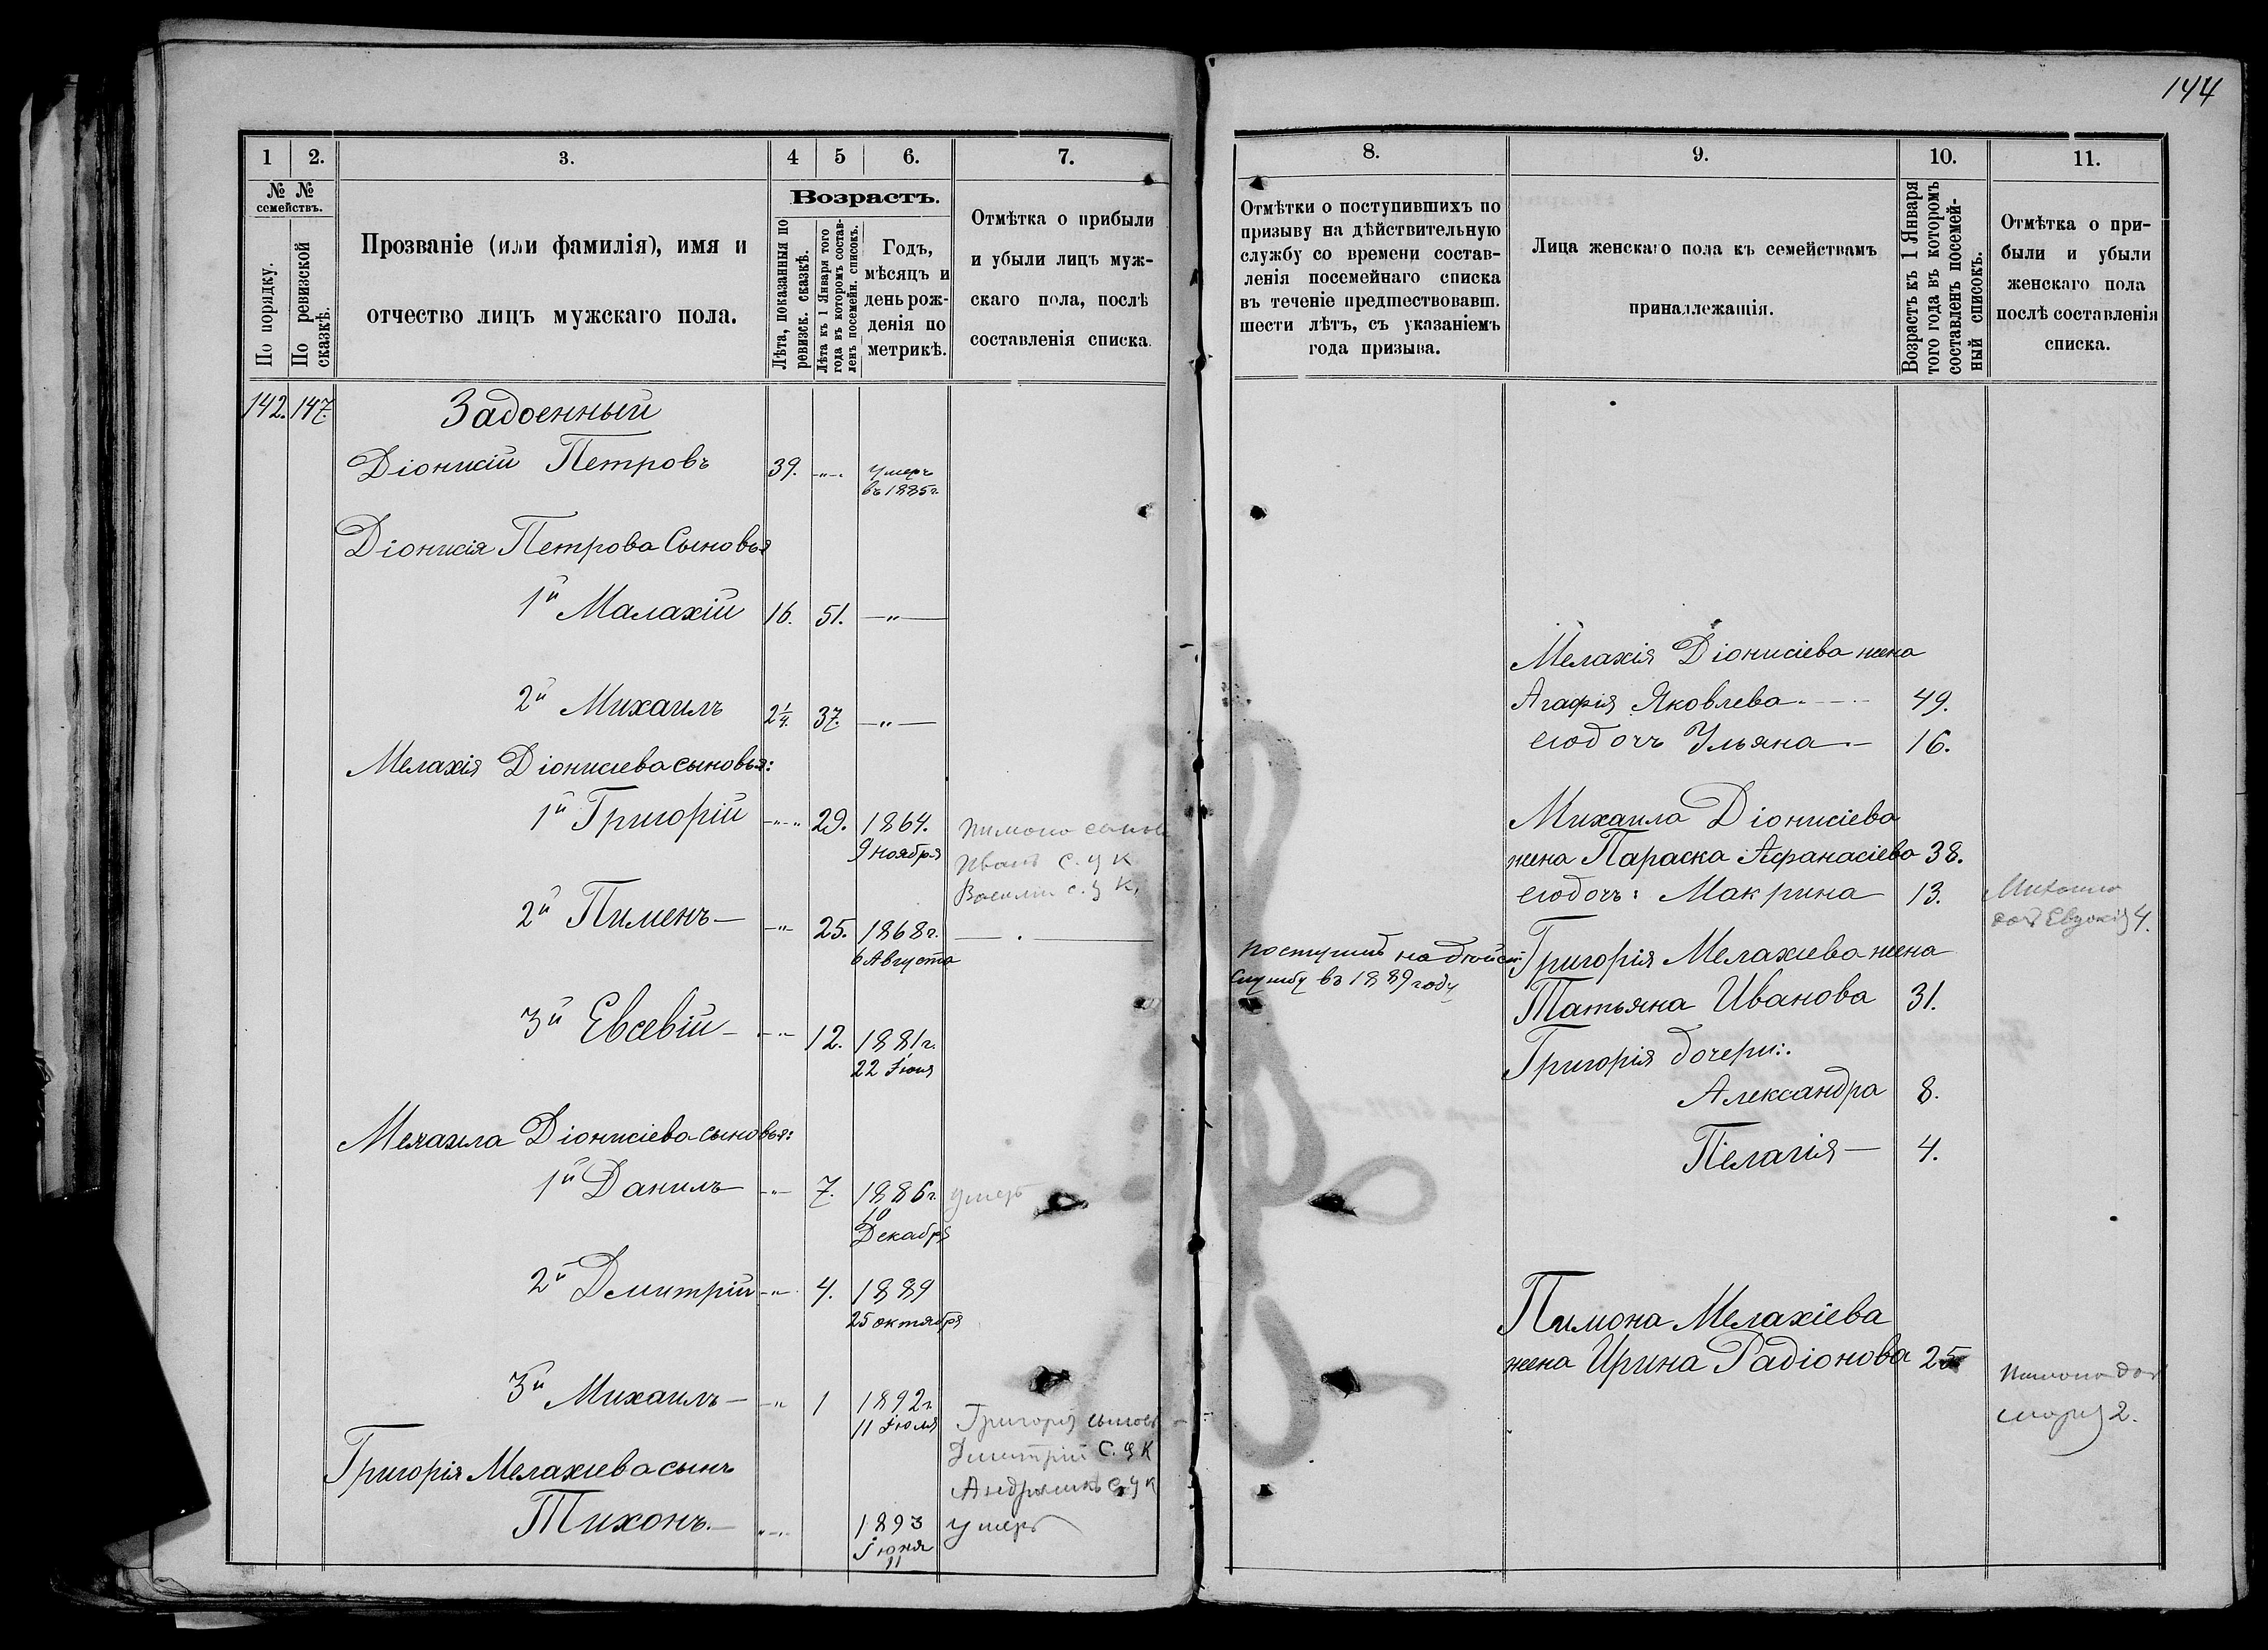 144
1 2. 3. 4 5 6. 7.
№ № семействъ.
По порядку.
По ревизской сказкѣ.
Прозваніе (или фамилія), имя и
отчество лицъ мужскаго пола.
Возрастъ.
Лѣта, показанныя по ревизск. сказкѣ.
Лѣта къ 1 Января того года въ которомъ составленъ посемейн. списокъ.
Годъ,
мѣсяцъ и
день рож-
денія по
метрикѣ.
Отмѣтка о прибыли
и убыли лицъ муж-
скаго пола, послѣ
составленія списка.
142. 147. Задоенный
Діонисій Петровъ 39. -"-. Умеръ
въ 1885 г.
Діонисія Петрова Сыновья
1й Малахій 16. 51. —"—
2й Михаилъ 2¼. 37. —"—
Мелахія Діонисіева сыновья:
1й Григорій -"-" 29. 1864.
9 ноября
Пимона сынов
Иванъ С. У К
Василій С. У К.
2й Пименъ — -"- 25. 1868 г.
6 Августа
3й Евсевій — -"- 12. 1881 г.
22 Іюня
Михаила Діонисіева сыновья:
1й Данилъ -"- 7. 1886 г. умеръ
10
Декабря
2й Дмитрій -"- 4. 1889
25 октября
3й Михаилъ — -"- 1 1892 г.
11 Іюля
Григорія сынов
Дмитрій С. У К
Андр С У К
Григорія Мелахіева сынъ
Тихонъ. — "-. 1893 умеръ
іюня
11
8. 9. 10. 11.
Отмѣтки о поступившихъ по
призыву на дѣйствительную
службу со времени состав-
ленія посемейнаго списка
въ теченіе предшествовавш.
шести лѣтъ, съ указаніемъ
года призыва.
Лица женскаго пола къ семействамъ
принадлежащія.
Возрастъ къ 1 Января
того года въ которомъ
составленъ посемей-
ный списокъ.
Отмѣтка о при-
были и убыли
женскаго пола
послѣ составленія
списка.
Мелахія Діонисіева жена
Агафія Яковлева. — 49.
его дочь Ульяна — 16.
Михаила Діонисіева
жена Параска Афанасіева 38.
его дочь: Макрина 13.
Михаила
доч Евдокія 4.
Поступилъ на дѣйст:
службу въ 1889 году
Григорія Мелахіева жена
Татьяна Иванова 31.
Григорія дочери:
Александра 8.
Пелагія — 4.
Пимона Мелахіева
жена Ирина Радіонова 25
Пимона доч
Марія 2.